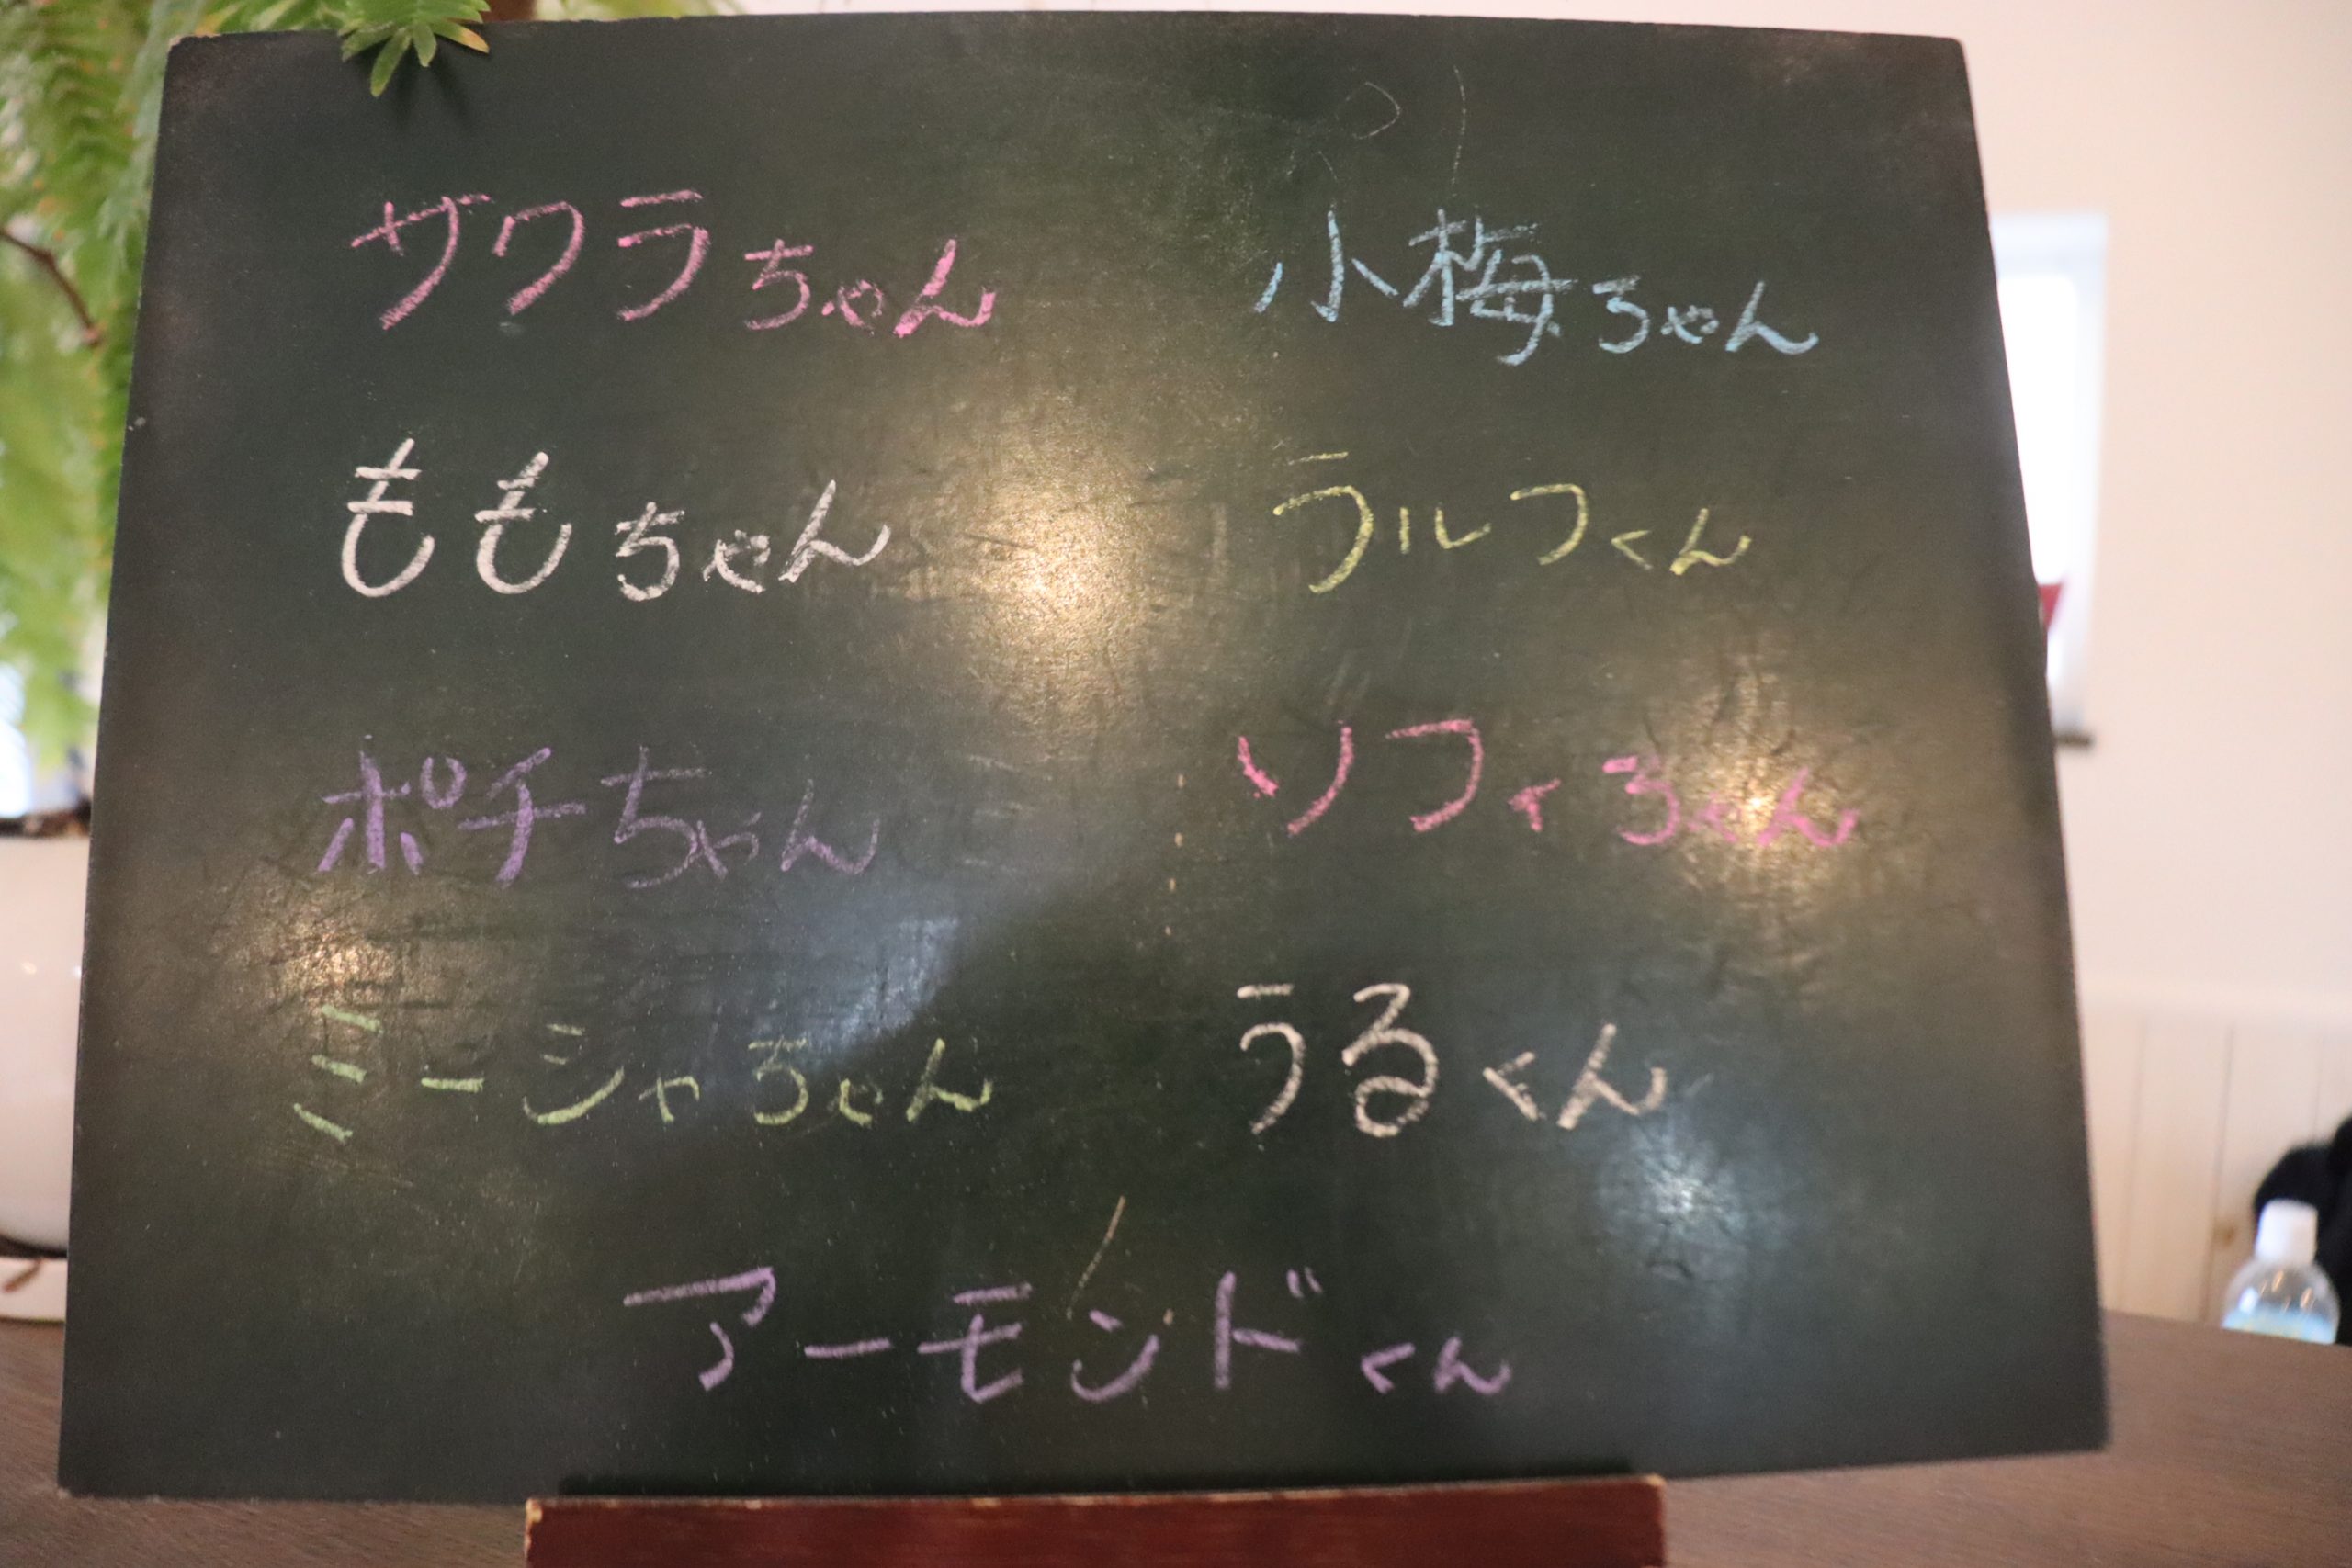 サクラちゃん 小梅ちゃん
ももちゃん ラルフくん
ポチちゃん ソフィちゃん
ミーシャちゃん うるくん
アーモンドくん